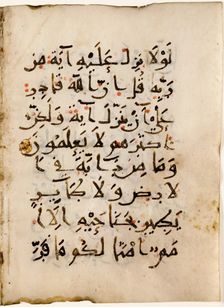 لولا نزل عليه اية من
ربه قل ان الله قادر
على ان ينزل اية ولكن
اكثرهم لا يعلمون
وما من دابة في ا
لارض ولا طاير
يطير بجناحيه الا ا
مم امثالكم ما فر